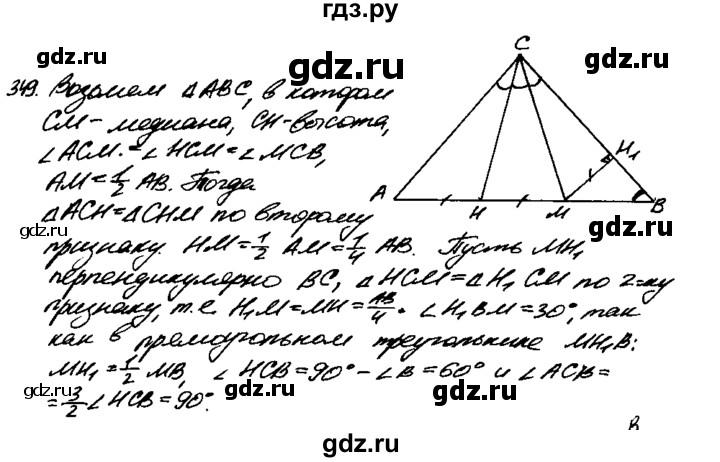 гдз.ру
gdz.ru
gdz.ru
gdz.ru
C
349. Возьмем △ABC, в котором
CM - медиана, CH - высота,
∠ACM = ∠HCM = ∠MCB,
AM = 1/2 AB. Тогда
A H M B H₁
△ACH = △CHM по второму
gdz.ru
gdz.ru
признаку. HM = 1/2 AM = 1/4 AB. Пусть MH₁
перпендикулярно BC, △HCM = △H₁CM по 2-му
gdz.ru
признаку, т.е. H₁M = MH = AB/4. ∠H₁BM = 30°, так
gdz.ru
как в прямоугольном треугольнике MH₁B:
MH₁ = 1/2 MB, ∠HCB = 90° - ∠B = 60° и ∠ACB =
gdz.ru
gdz.ru
gdz.ru
= 3/2 ∠HCB = 90°.
gdz.ru